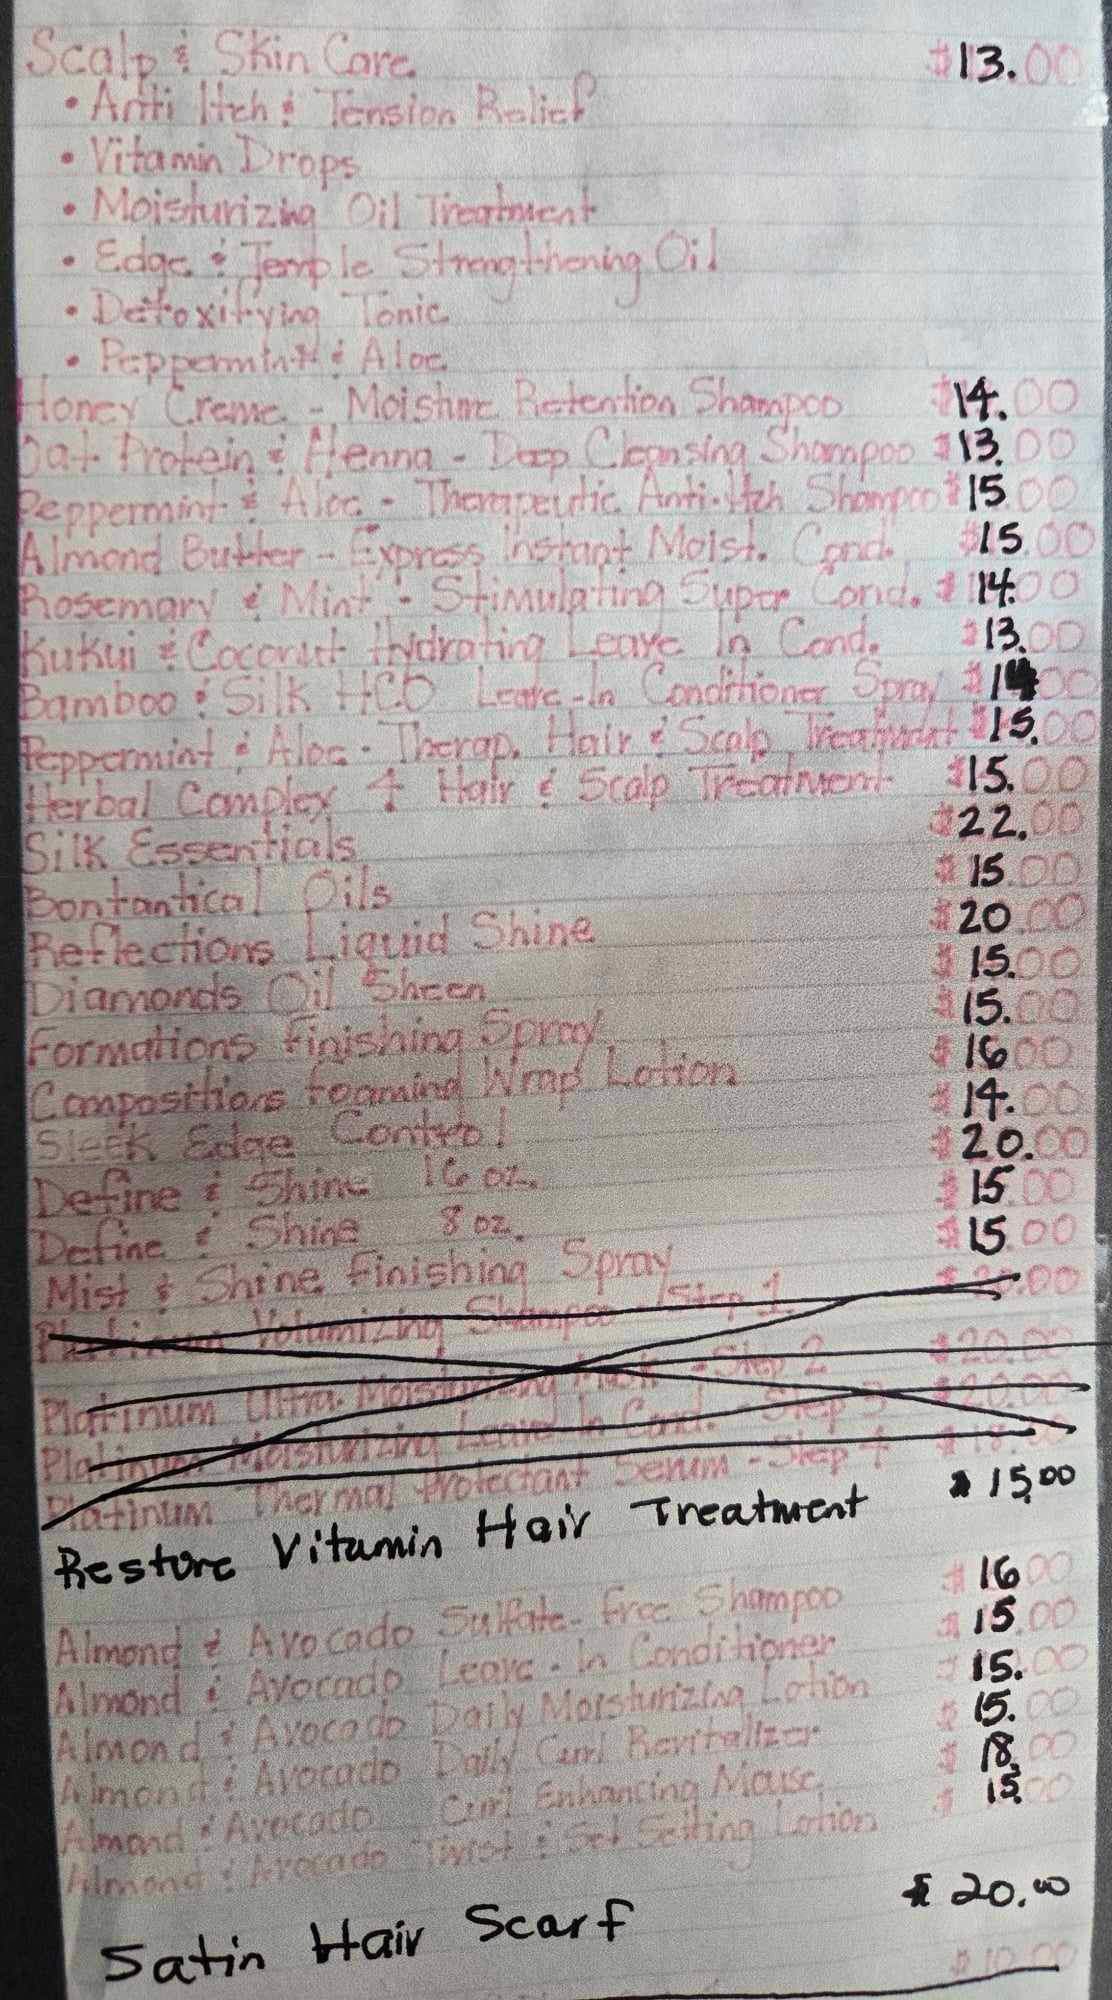 Scalp & Skin Care $13.00
• Anti Itch & Tension Relief
• Vitamin Drops
• Moisturizing Oil Treatment
• Edge & Temple Strengthening Oil
• Detoxifying Tonic
• Peppermint & Aloe
Honey Creme - Moisture Retention Shampoo $14.00
Oat Protein & Henna - Deep Cleansing Shampoo $13.00
Peppermint & Aloe - Therapeutic Anti-Itch Shampoo $15.00
Almond Butter - Express Instant Moist. Cond. $15.00
Rosemary & Mint - Stimulating Super Cond. $14.00
Kukui & Coconut Hydrating Leave In Cond. $13.00
Bamboo & Silk HCO Leave-In Conditioner Spray $14.00
Peppermint & Aloe - Therap. Hair & Scalp Treatment $15.00
Herbal Complex 4 Hair & Scalp Treatment $15.00
Silk Essentials $22.00
Bontantical Oils $15.00
Reflections Liquid Shine $20.00
Diamonds Oil Sheen $15.00
Formations Finishing Spray $15.00
Compositions Foamind Wrap Lotion $16.00
Sleek Edge Control $14.00
Define & Shine 16 oz. $20.00
Define & Shine 8 oz. $15.00
Mist & Shine Finishing Spray $15.00
Platinum Volumizing Shampoo - Step 1 $20.00
Platinum Ultra Moisturizing Mask - Step 2 $20.00
Platinum Moisturizing Leave In Cond. - Step 3 $20.00
Platinum Thermal Protectant Serum - Step 4 $18.00
Restore Vitamin Hair Treatment $15.00
Almond & Avocado Sulfate-Free Shampoo $16.00
Almond & Avocado Leave-In Conditioner $15.00
Almond & Avocado Daily Moisturizing Lotion $15.00
Almond & Avocado Daily Curl Revitalizer $15.00
Almond & Avocado Curl Enhancing Mouse $18.00
Almond & Avocado Twist & Set Setting Lotion $15.00
Satin Hair Scarf $20.00
$10.00